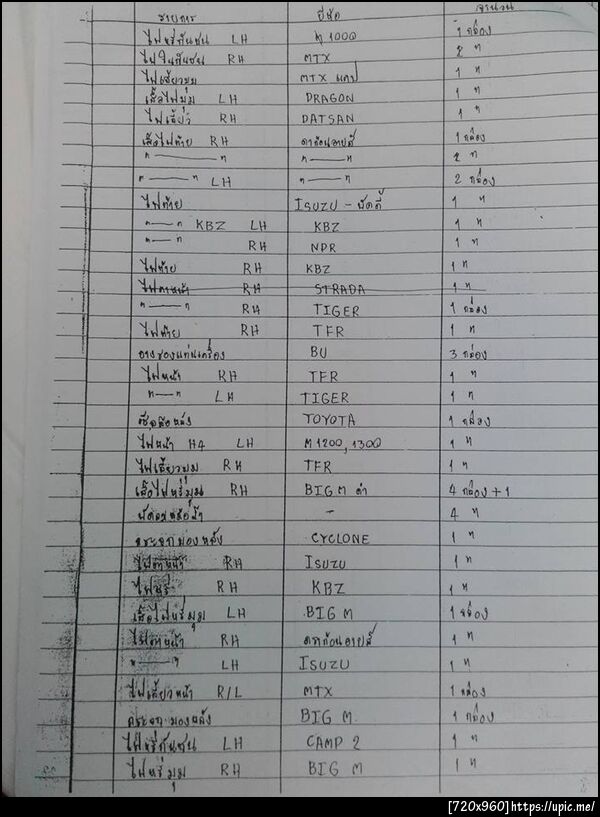 รายการ ยี่ห้อ จำนวน
ไฟหรี่กันชน LH M 1000 1 กล่อง
ไฟในกันชน RH MTX 2 "
ไฟเลี้ยวมุม MTX แคป 1 "
เสื้อไฟมุม LH DRAGON 1 "
ไฟเลี้ยว RH DATSAN 1 "
เสื้อไฟท้าย RH ดาก้อนอายส์ 1 กล่อง
"——" "——" 2 "
"——" LH "——" 2 กล่อง
ไฟท้าย ISUZU - บัดดี้ 1 "
"——" KBZ LH KBZ 1 "
"——" RH NPR 1 "
ไฟท้าย RH KBZ 1 "
ไฟตาหน้า RH STRADA 1 "
"——" RH TIGER 1 กล่อง
ไฟท้าย RH TFR 1 "
ยางรองแท่นเครื่อง BU 3 กล่อง
ไฟหน้า RH TFR 1 "
"——" LH TIGER 1 "
TOYOTA 1 กล่อง
ไฟหน้า H4 LH M 1200, 1300 1 "
ไฟเลี้ยวมุม RH TFR 1 "
เสื้อไฟหรี่มุม RH BIG M ดำ 4 กล่อง + 1
พัดลมหม้อน้ำ - 4 "
กระจกมองหลัง CYCLONE 1 "
ไฟตาหน้า RH ISUZU 1 "
ไฟหรี่ RH KBZ 1 "
เสื้อไฟหรี่มุม LH BIG M 1 กล่อง
ไฟตาหน้า RH ดาก้อนอายส์ 1 "
"——" LH ISUZU 1 "
ไฟเลี้ยวหน้า R/L MTX 1 กล่อง
กระจกมองหลัง BIG M 1 กล่อง
ไฟหรี่กันชน LH CAMP 2 1 "
ไฟหรี่มุม RH BIG M 1 "
[720x960]https://upic.me/